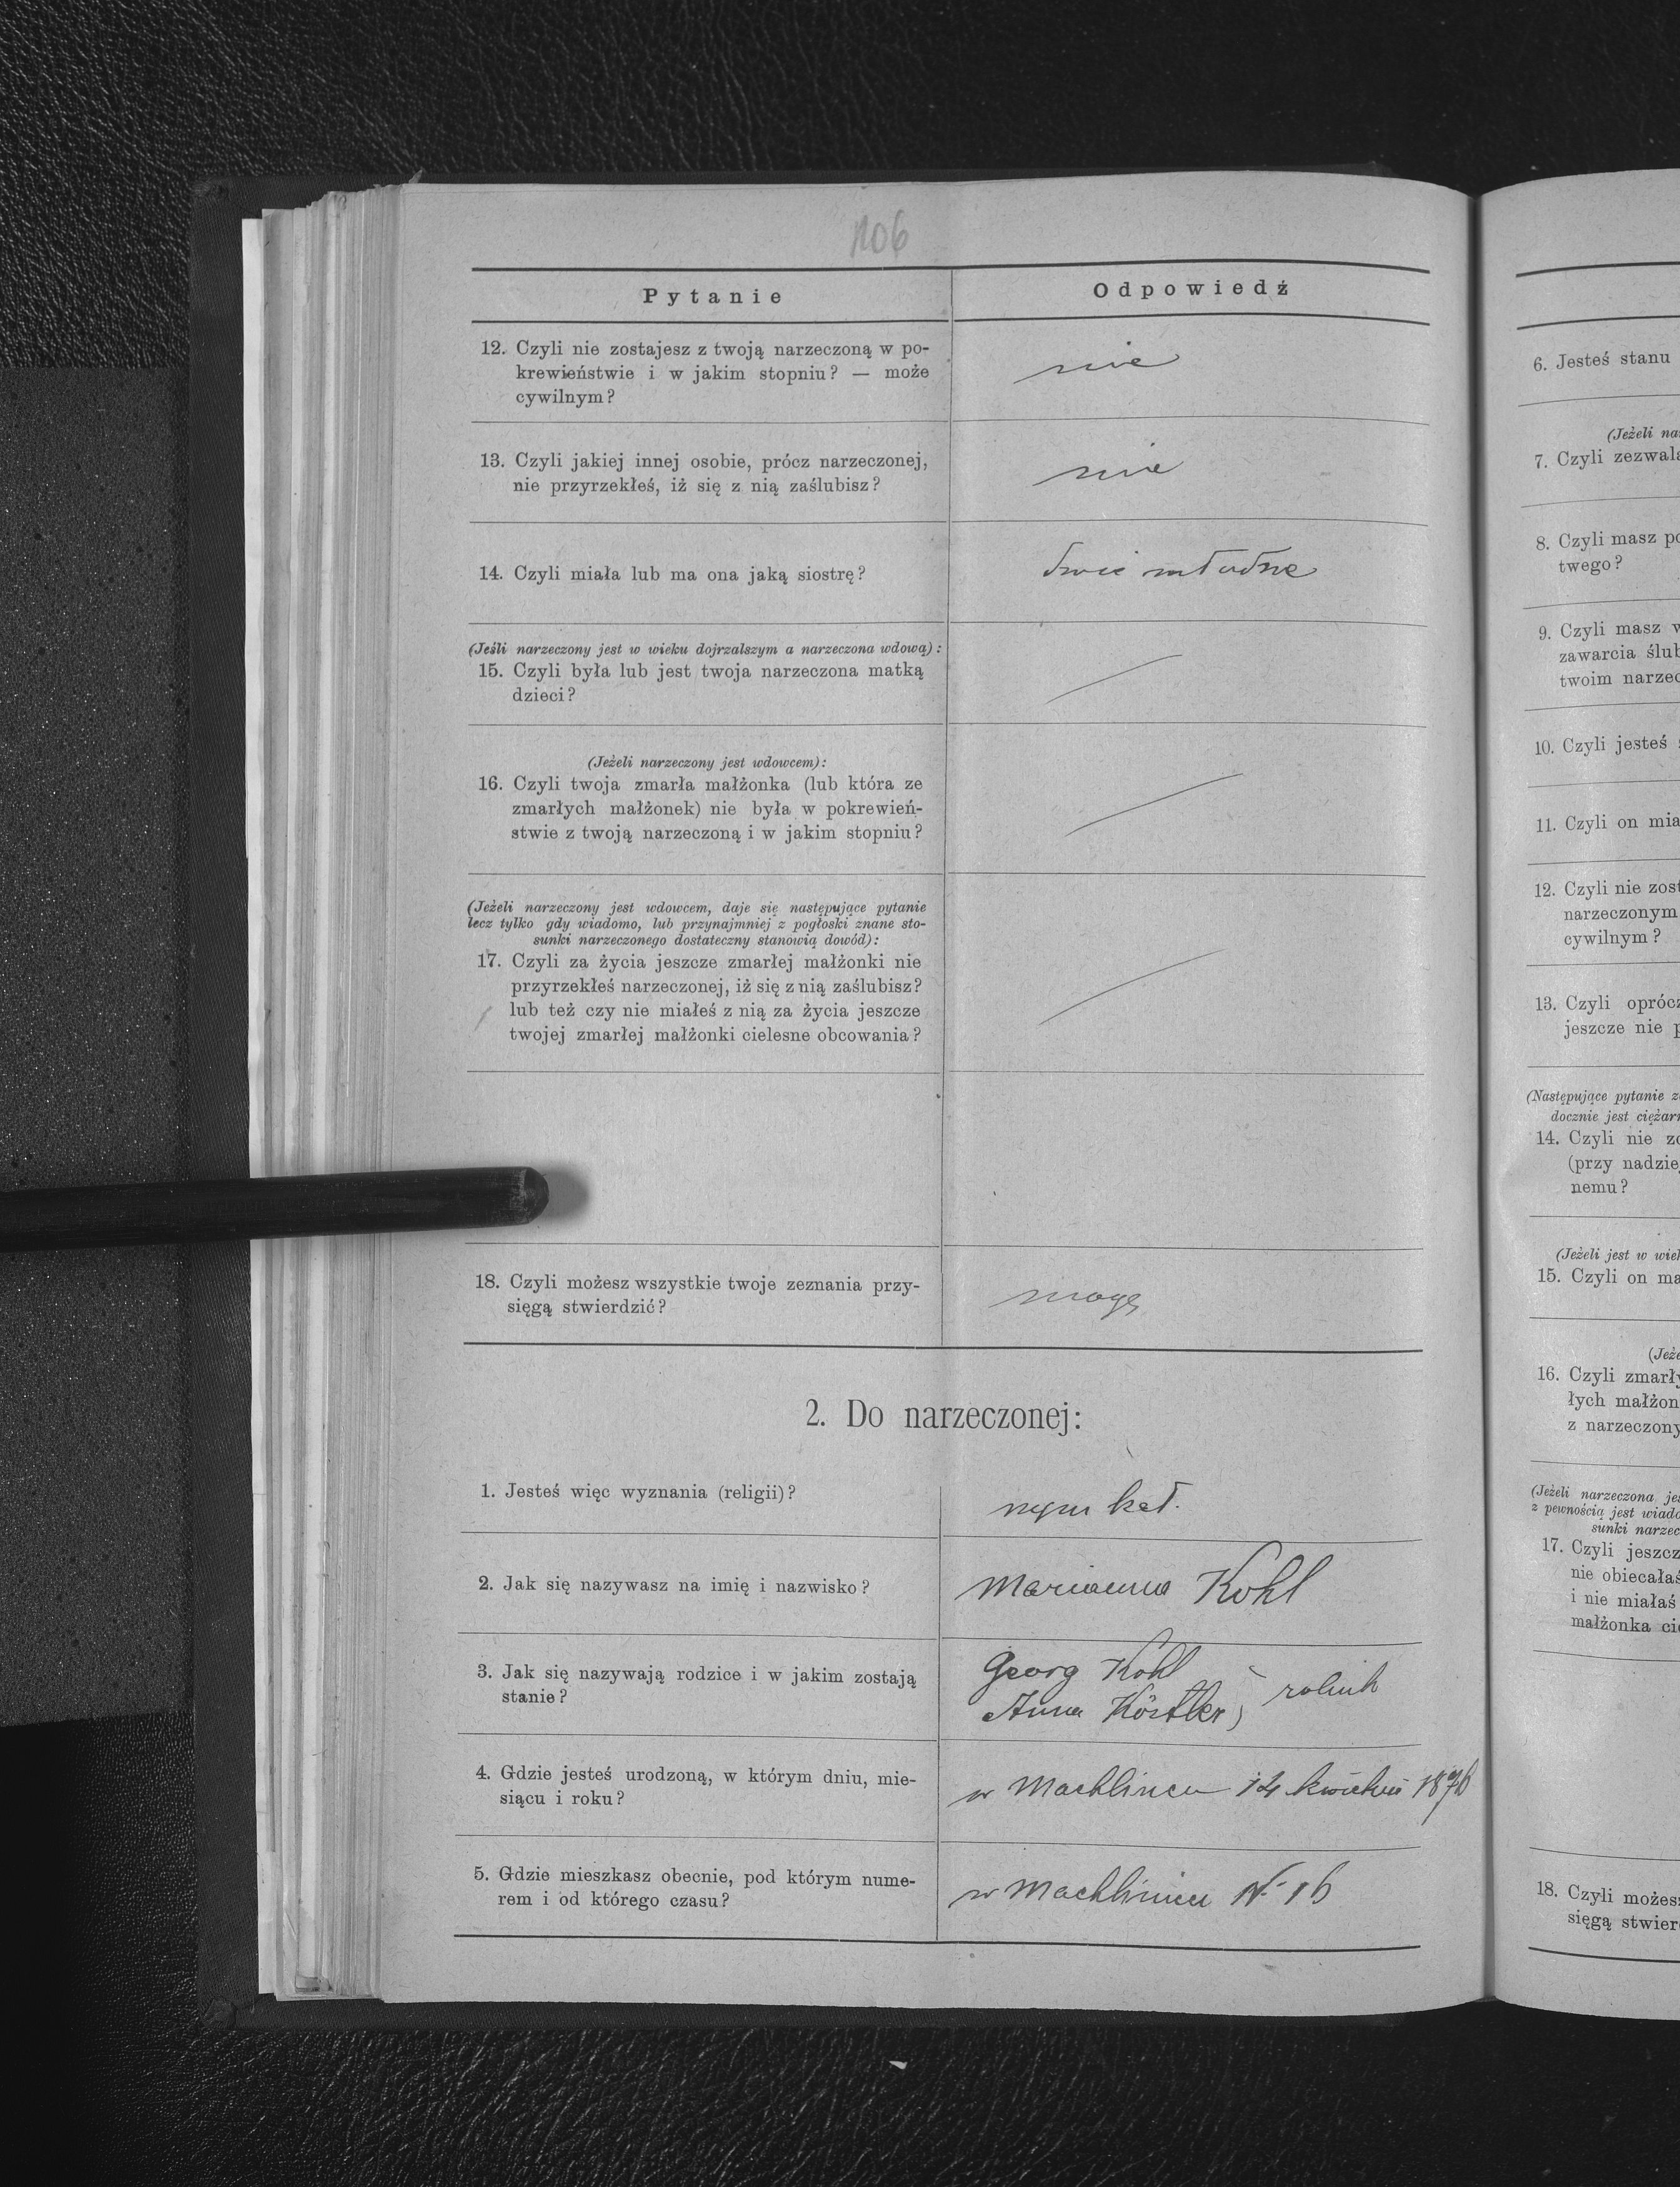 106
Pytanie
Odpowiedź
12. Czyli nie zostajesz z twoją narzeczoną w po-
krewieństwie i w jakim stopniu? — może
cywilnym?
nie
13. Czyli jakiej innej osobie, prócz narzeczonej,
nie przyrzekłeś, iż się z nią zaślubisz?
nie
14. Czyli miała lub ma ona jaką siostrę?
dwie młodsze
(Jeśli narzeczony jest w wieku dojrzalszym a narzeczona wdową):
15. Czyli była lub jest twoja narzeczona matką
dzieci?
(Jeżeli narzeczony jest wdowcem):
16. Czyli twoja zmarła małżonka (lub która ze
zmarłych małżonek) nie była w pokrewień-
stwie z twoją narzeczoną i w jakim stopniu?
(Jeżeli narzeczony jest wdowcem, daje się następujące pytanie
lecz tylko gdy wiadomo, lub przynajmniej z pogłoski znane sto-
sunki narzeczonego dostateczny stanowią dowód):
17. Czyli za życia jeszcze zmarłej małżonki nie
przyrzekłeś narzeczonej, iż się z nią zaślubisz?
lub też czy nie miałeś z nią za życia jeszcze
twojej zmarłej małżonki cielesne obcowania?
18. Czyli możesz wszystkie twoje zeznania przy-
sięgą stwierdzić?
mogę
2. Do narzeczonej:
1. Jesteś więc wyznania (religii)?
rzym kat.
2. Jak się nazywasz na imię i nazwisko?
Marianna Kohl
3. Jak się nazywają rodzice i w jakim zostają
stanie?
Georg Kohl
Anna Köstler } rolnik
4. Gdzie jesteś urodzoną, w którym dniu, mie-
siącu i roku?
w Machlincu 14 kwietnia
5. Gdzie mieszkasz obecnie, pod którym nume-
rem i od którego czasu?
w Machlincu N 16
6. Jesteś stanu
(Jeżeli
7. Czyli
8. Czyli masz
twego?
9. Czyli masz
zawarcia
twoim
10. Czyli jesteś
11. Czyli on
12. Czyli nie
narzeczonym
cywilnym?
13. Czyli
jeszcze nie
(Następujące pytanie
docznie jest
14. Czyli nie
(przy
nemu?
(Jeżeli jest w
15. Czyli on
16. Czyli
łych
z
(Jeżeli narzeczona
z pewnością jest
sunki
17. Czyli
nie
i nie miałaś
małżonka
18. Czyli
sięgą